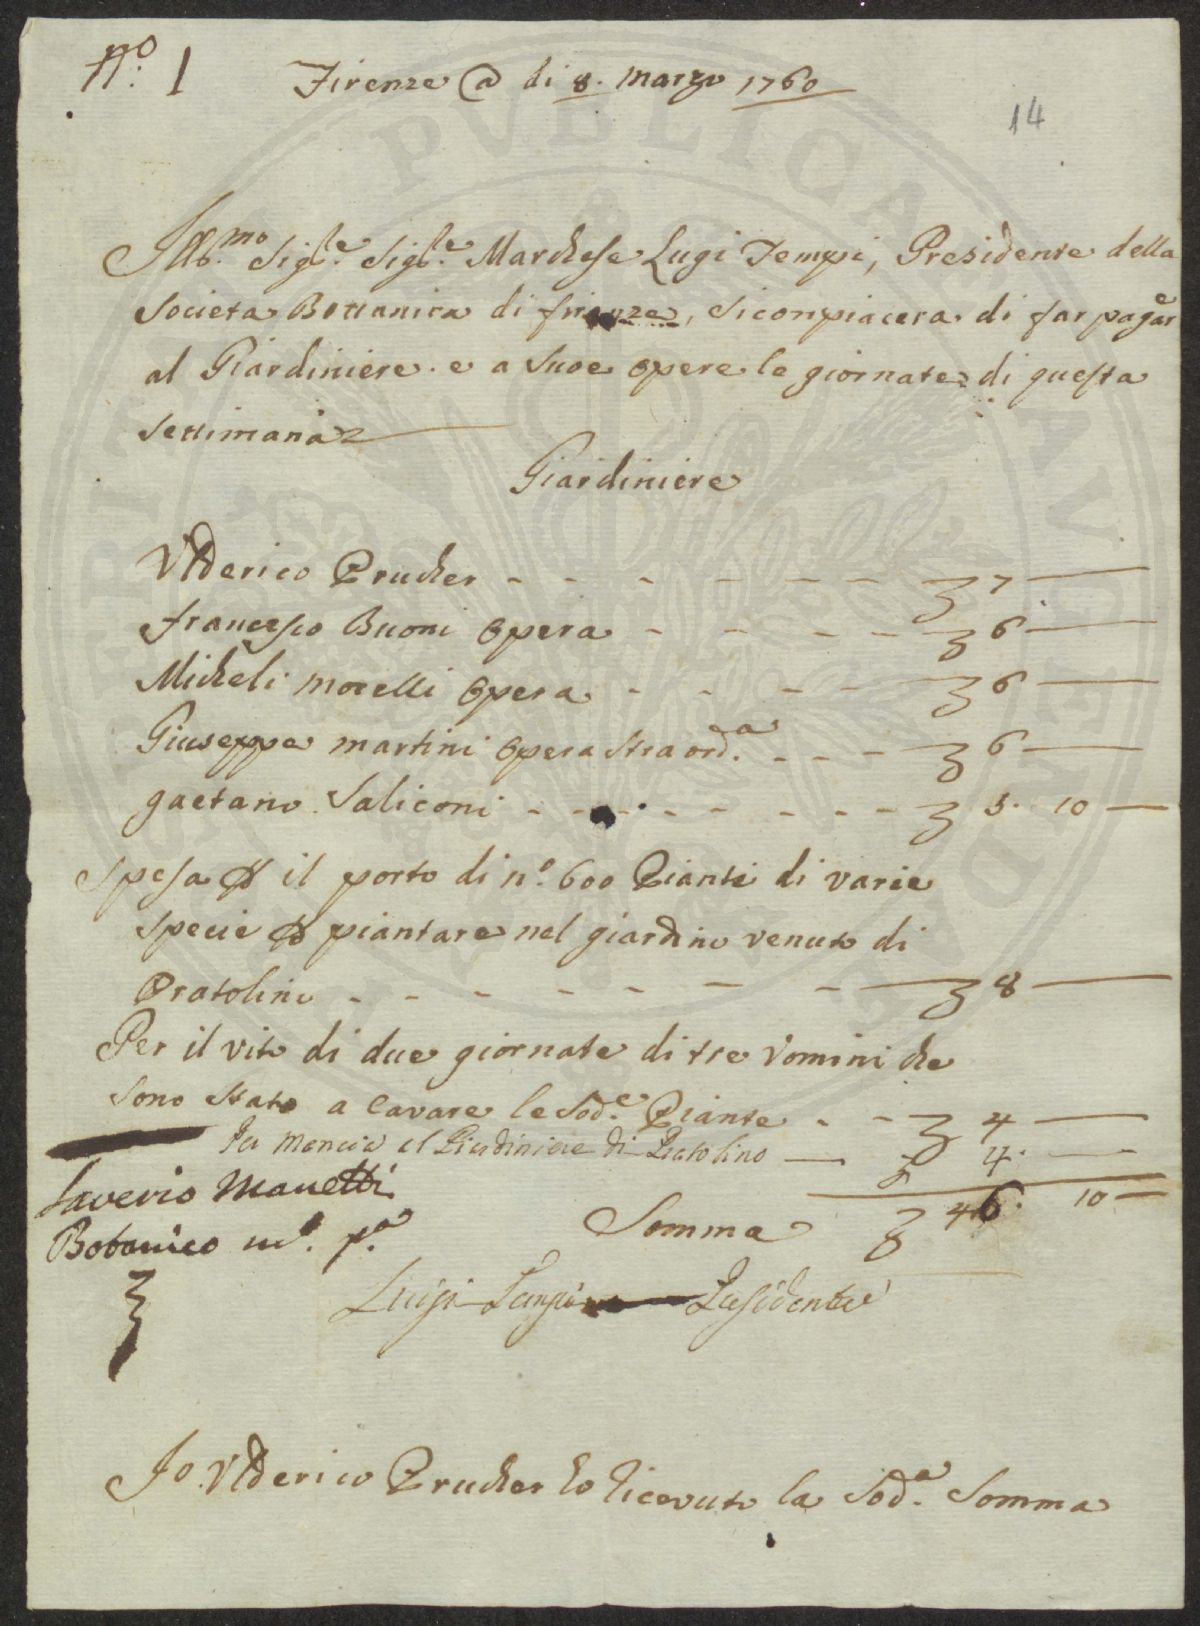 N.º 1
Firenze @ di 8. Marzo 1760
14
Ill.mo Sig.re Sig.re Marchese Lugi Tempi, Presidente della
Societa Bottanica di firenze, si conpiacera di far pagare
al Giardiniere e a suoe opere le giornate di questa
settimana
Giardiniere
Vlderico Prucher - - - - - - - £ 7
francesco Buoni opera - - - - £ 6
Micheli morelli opera - - - - £ 6
Giuseppe martini opera straord.a - - - £ 6
gaetano Saliconi - - - - - - - £ 5. 10
Spesa p il porto di n.º 600 Piante di varie
specie p piantare nel giardino venuto di
Pratolino - - - - - - - £ 8
Per il vito di due giornate di tre vomini che
sono stato a cavare le sod.e Piante - - £ 4
Per mancia al Giardiniere di Pratolino £ 4.
Saverio Manetti
Somma £ 46. 10
Botanico m.o p.a
Luigi Tempi Presidente
Jo Vlderico Prucher ho ricevuto la sod.a somma